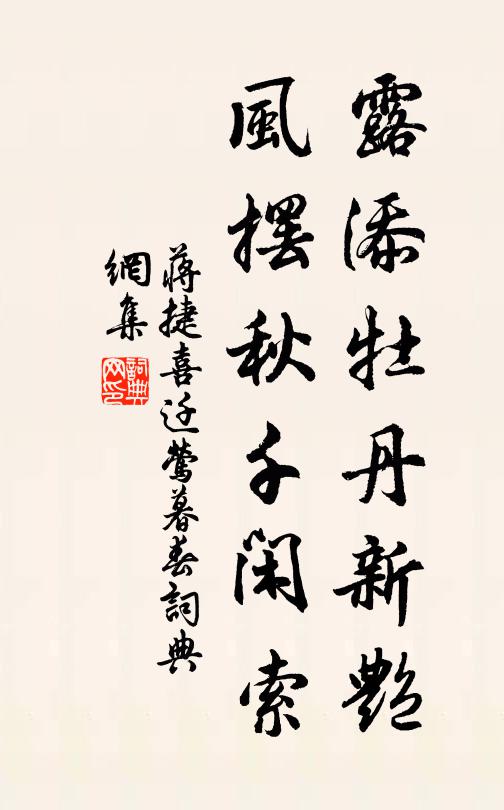 露添牡丹新艷
風擺秋千閑索
蔣捷喜迁鶯暮春詞典
網集
詞典
网印